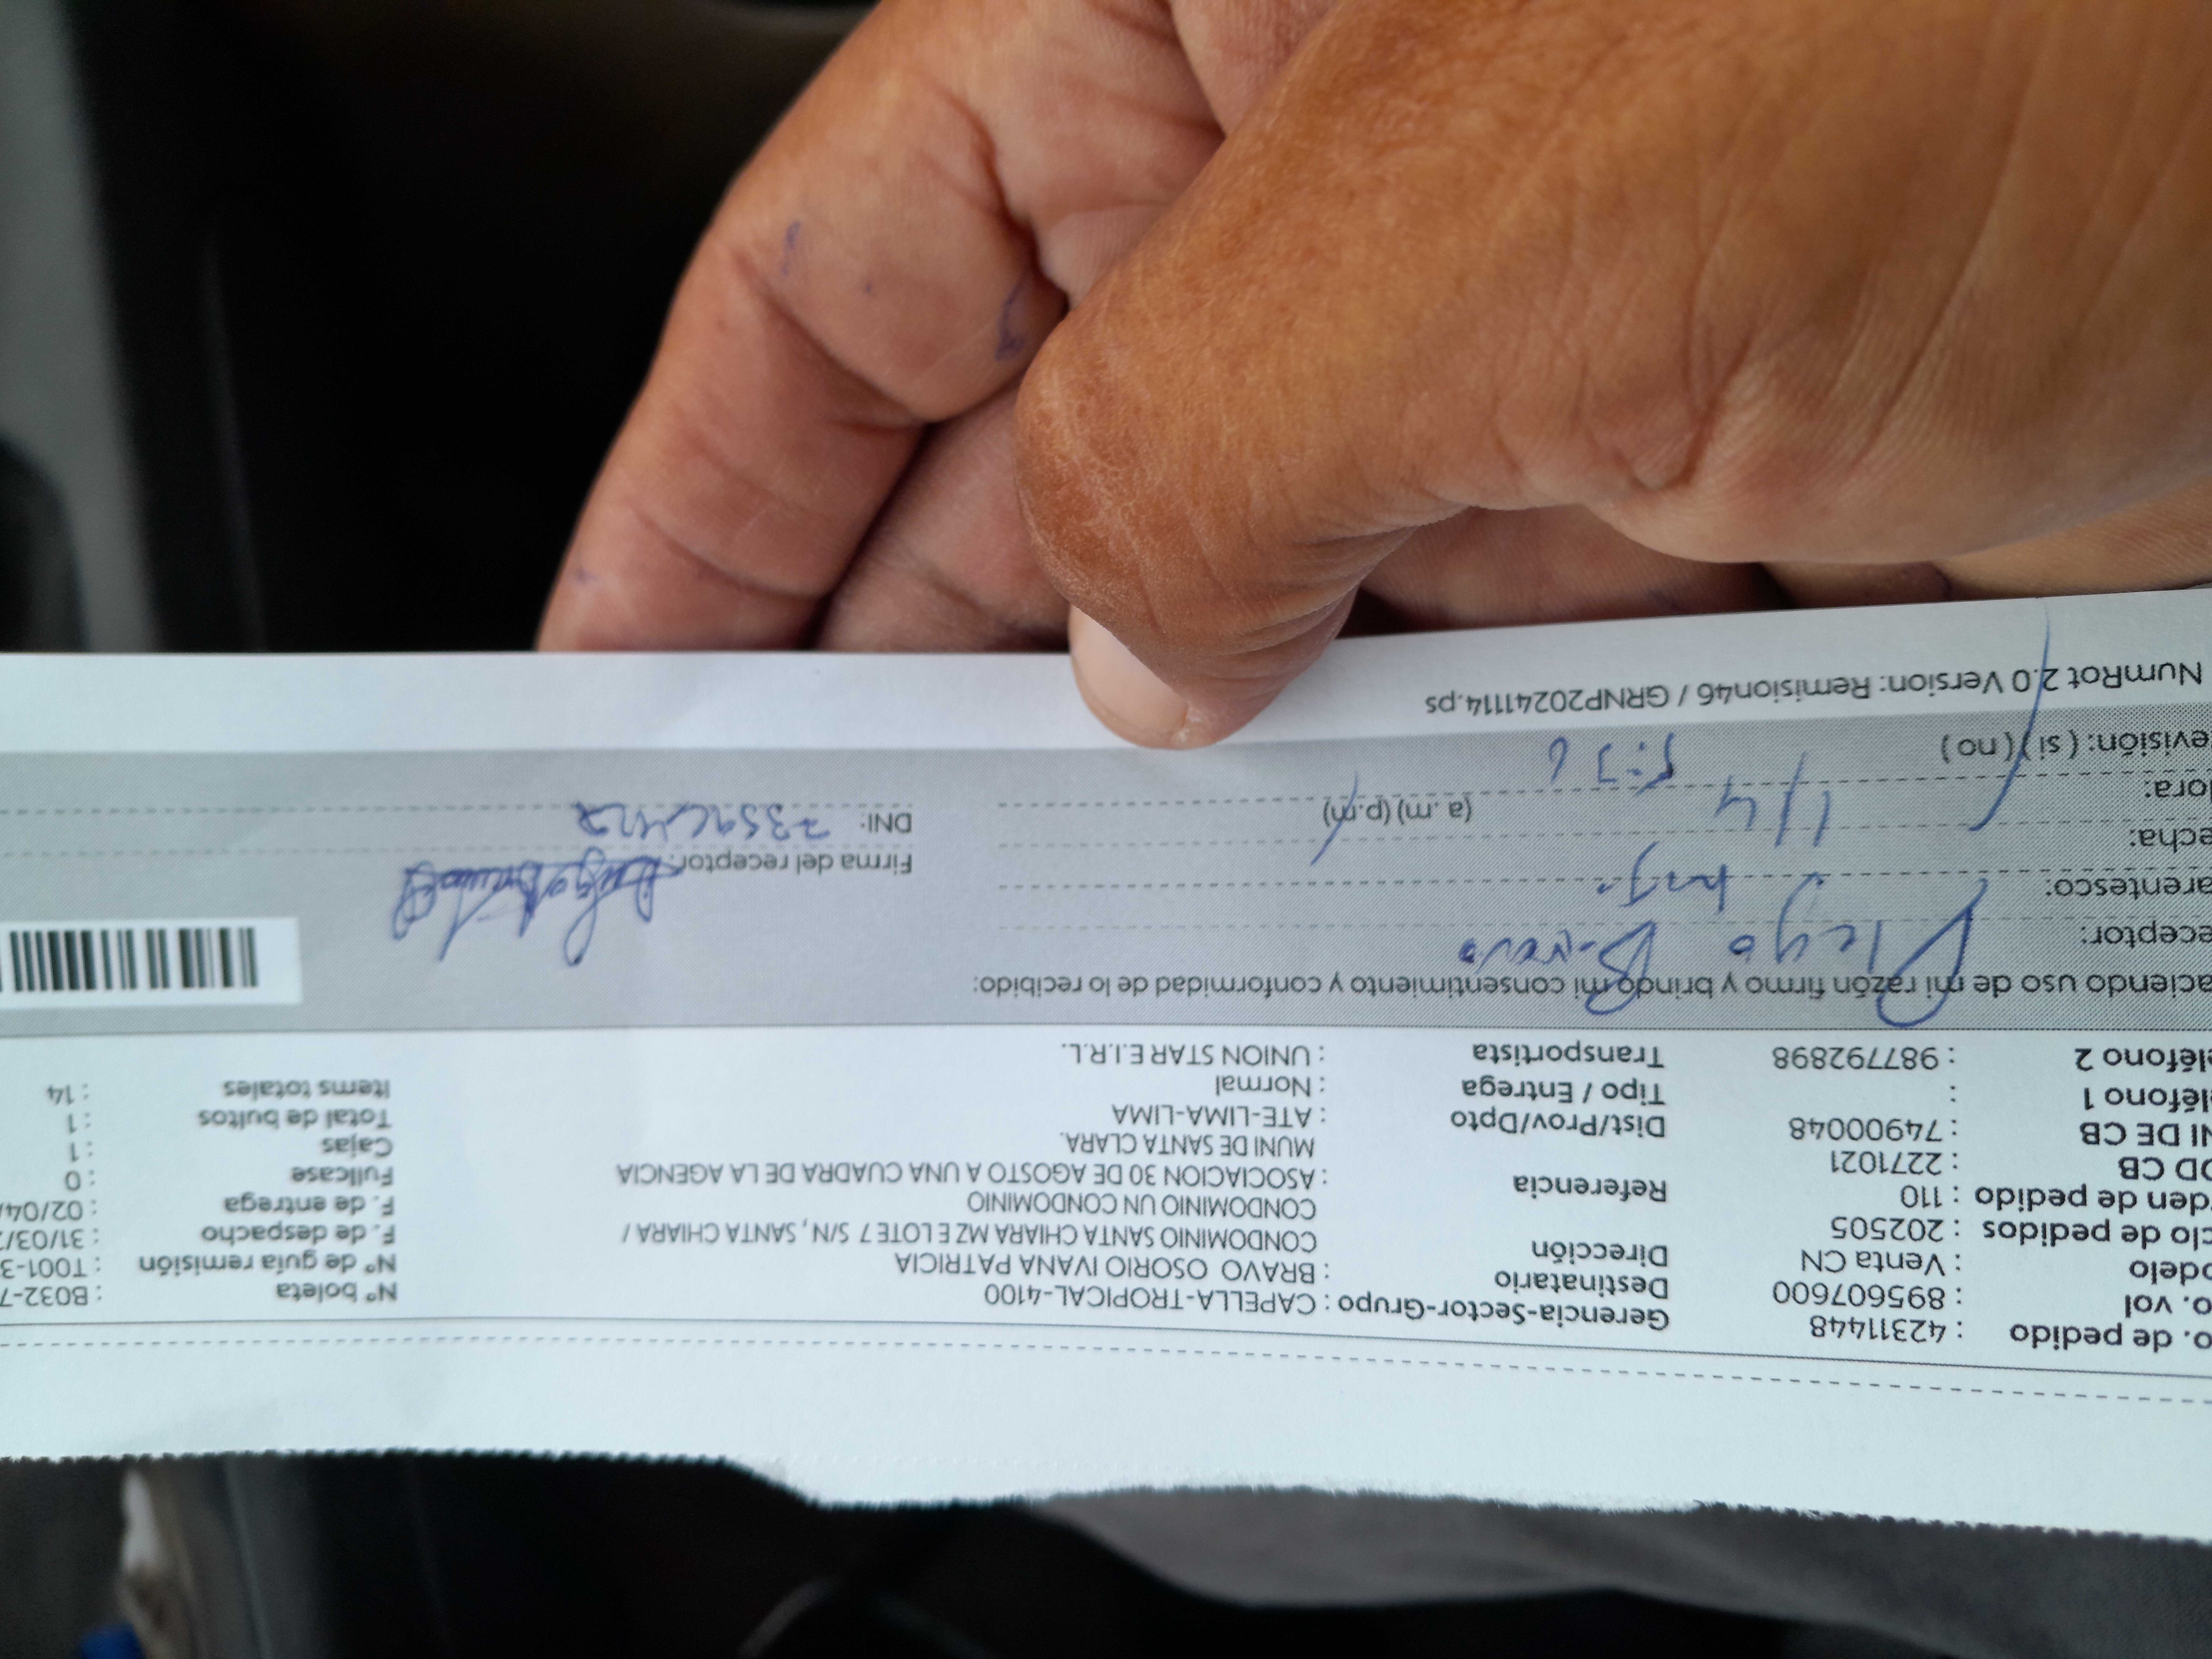 o. de pedido : 42311448
o. vol : 895607600
odelo : Venta CN
clo de pedidos : 202505
den de pedido : 110
OD CB : 2271021
NI DE CB : 74900048
léfono 1 :
léfono 2 : 987792898
Gerencia-Sector-Grupo : CAPELLA-TROPICAL-4100
Destinatario : BRAVO OSORIO IVANA PATRICIA
Dirección CONDOMINIO SANTA CHIARA MZ E LOTE 7 S/N, SANTA CHIARA /
CONDOMINIO UN CONDOMINIO
Referencia : ASOCIACION 30 DE AGOSTO A UNA CUADRA DE LA AGENCIA
MUNI DE SANTA CLARA.
Dist/Prov/Dpto : ATE-LIMA-LIMA
Tipo / Entrega : Normal
Transportista : UNION STAR E.I.R.L.
Nº boleta : B032-7
Nº de guía remisión : T001-3
F. de despacho : 31/03/
F. de entrega : 02/04/
Fullcase : 0
Cajas : 1
Total de bultos : 1
Items totales : 14
aciendo uso de mi razón firmo y brindo mi consentimiento y conformidad de lo recibido:
eceptor: Diego
arentesco:
echa: 1/4
ora: (a. m) (p.m)
evisión: ( si ) ( no )
Firma del receptor:
DNI:
NumRot 2.0 Version: Remision46 / GRNP20241114.ps